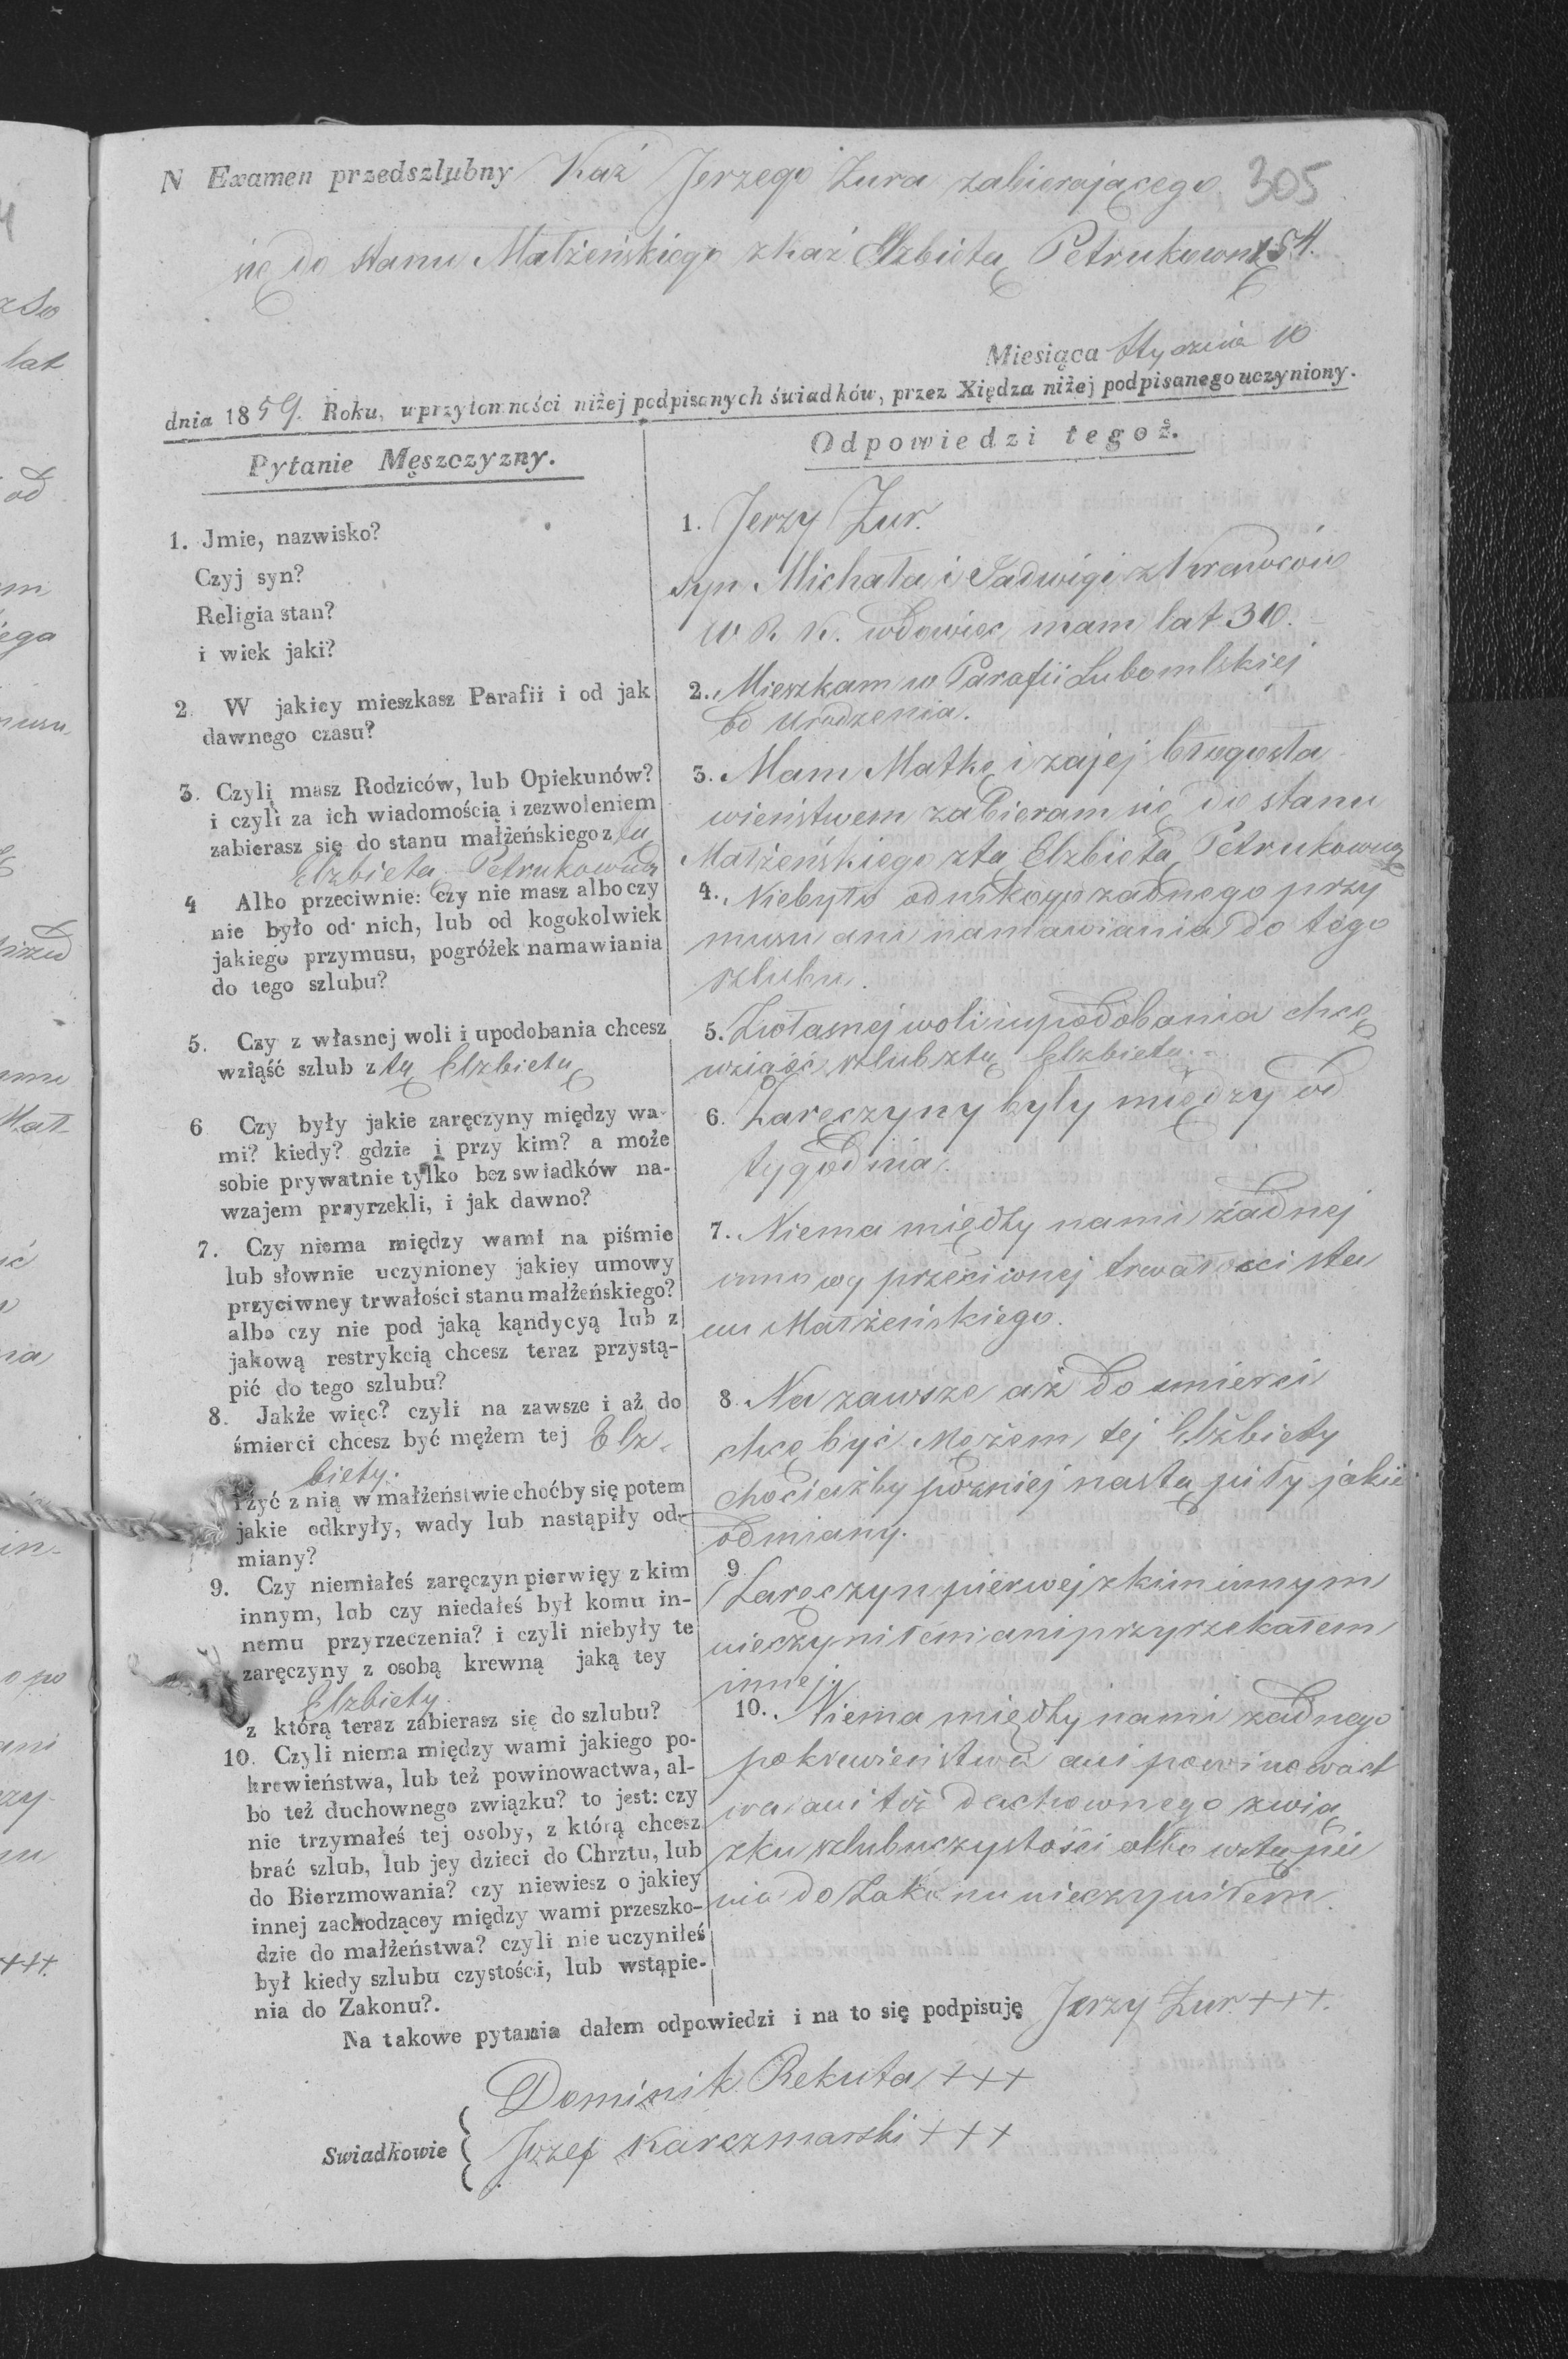 N Examen przedszlubny Kaź Jerzego Zura zabierającego 305
się do stanu Małżeńskiego zkaź Elzbietą Petrukowną 154.
Miesiąca Stycznia 10
dnia 1859. Roku, w przytomności niżej podpisanych świadków, przez Xiędza niżej podpisanego uczyniony.
Pytanie Męszczyzny.
1. Jmie, nazwisko?
Czyj syn?
Religia stan?
i wiek jaki?
2. W jakiey mieszkasz Parafii i od jak
dawnego czasu?
3. Czylį masz Rodziców, lub Opiekunów?
i czyli za ich wiadomością i zezwoleniem
zabierasz się do stanu małżeńskiego z tą
Elzbieta Petrukowną
4 Albo przeciwnie: czy nie masz albo czy
nie było od nich, lub od kogokolwiek
jakiego przymusu, pogróżek namawiania
do tego szlubu?
5. Czy z własnej woli i upodobania chcesz
wziąść szlub z tą Elzbietą
6 Czy były jakie zaręczyny między wa-
mi? kiedy? gdzie i przy kim? a może
sobie prywatnie tylko bez swiadków na-
wzajem przyrzekli, i jak dawno?
7. Czy niema między wami na piśmie
lub słownie uczynioney jakiey umowy
przyciwney trwałości stanu małżeńskiego?
albo czy nie pod jaką kąndycyą lub z
jakową restrykcią chcesz teraz przystą-
pić do tego szlubu?
8. Jakże więc? czyli na zawsze i aż do
śmierci chcesz być mężem tej Elz-
biety.
i żyć z nią w małżeństwie choćby się potem
jakie odkryły, wady lub nastąpiły od-
miany?
9. Czy niemiałeś zaręczyn pierwięy z kim
innym, lub czy niedałeś był komu in-
nemu przyrzeczenia? i czyli niebyły te
zaręczyny z osobą krewną jaką tey
Elzbiety.
z którą teraz zabierasz się do szlubu?
10. Czyli niema między wami jakiego po-
krewieństwa, lub też powinowactwa, al-
bo też duchownego związku? to jest: czy
nie trzymałeś tej osoby, z którą chcesz
brać szlub, lub jey dzieci do Chrztu, lub
do Bierzmowania? czy niewiesz o jakiey
innej zachodzącey między wami przeszko-
dzie do małżeństwa? czyli nie uczyniłeś
był kiedy szlubu czystości, lub wstąpie-
nia do Zakonu?.
Odpowiedzi tegoż.
1. Jerzy Zur.
syn Michała i Jadwigi z Krawców
W. R. K. wdowiec mam lat 30.
2. Mieszkam w Parafii Lubomlskiej
od urodzenia.
3. Mam Matkę i zajej błogosła
wieństwem zabieram się do stanu
Małżeńskiego zta Elzbietą Petrukowną
4. Niebyło odnikogo zadnego przy
musu ani namawiania do tego
szlubu.
5. Zwłasnej woli i upodobania chcę
wziąść szlub ztą Elzbietą.
6. Zaręczyny były między od
tygodnia.
7. Niema między nami żadnej
umowy przeciwnej trwałości sta
nu Małżeńskiego.
8. Na zawsze aż do smierci
chcę być Mężem tej Elżbiety
chociażby pozniej nastąpiły jakie
odmiany.
9 Zaręczyn pierwej zkim innym
nieczyniłem ani przyrzekałem
innej.
10. Niema między nami zadnego
pokrewieństwa ani powinowact
wa ani też duchownego zwią
zku szlubu czystości albo wstąpie
nia do Zakonu nieczyniłem.
Na takowe pytania dałem odpowiedzi i na to się podpisuję Jerzy Zur. +++.
Swiadkowie { Dominik Rekuta +++
Jozef Karczmarski +++